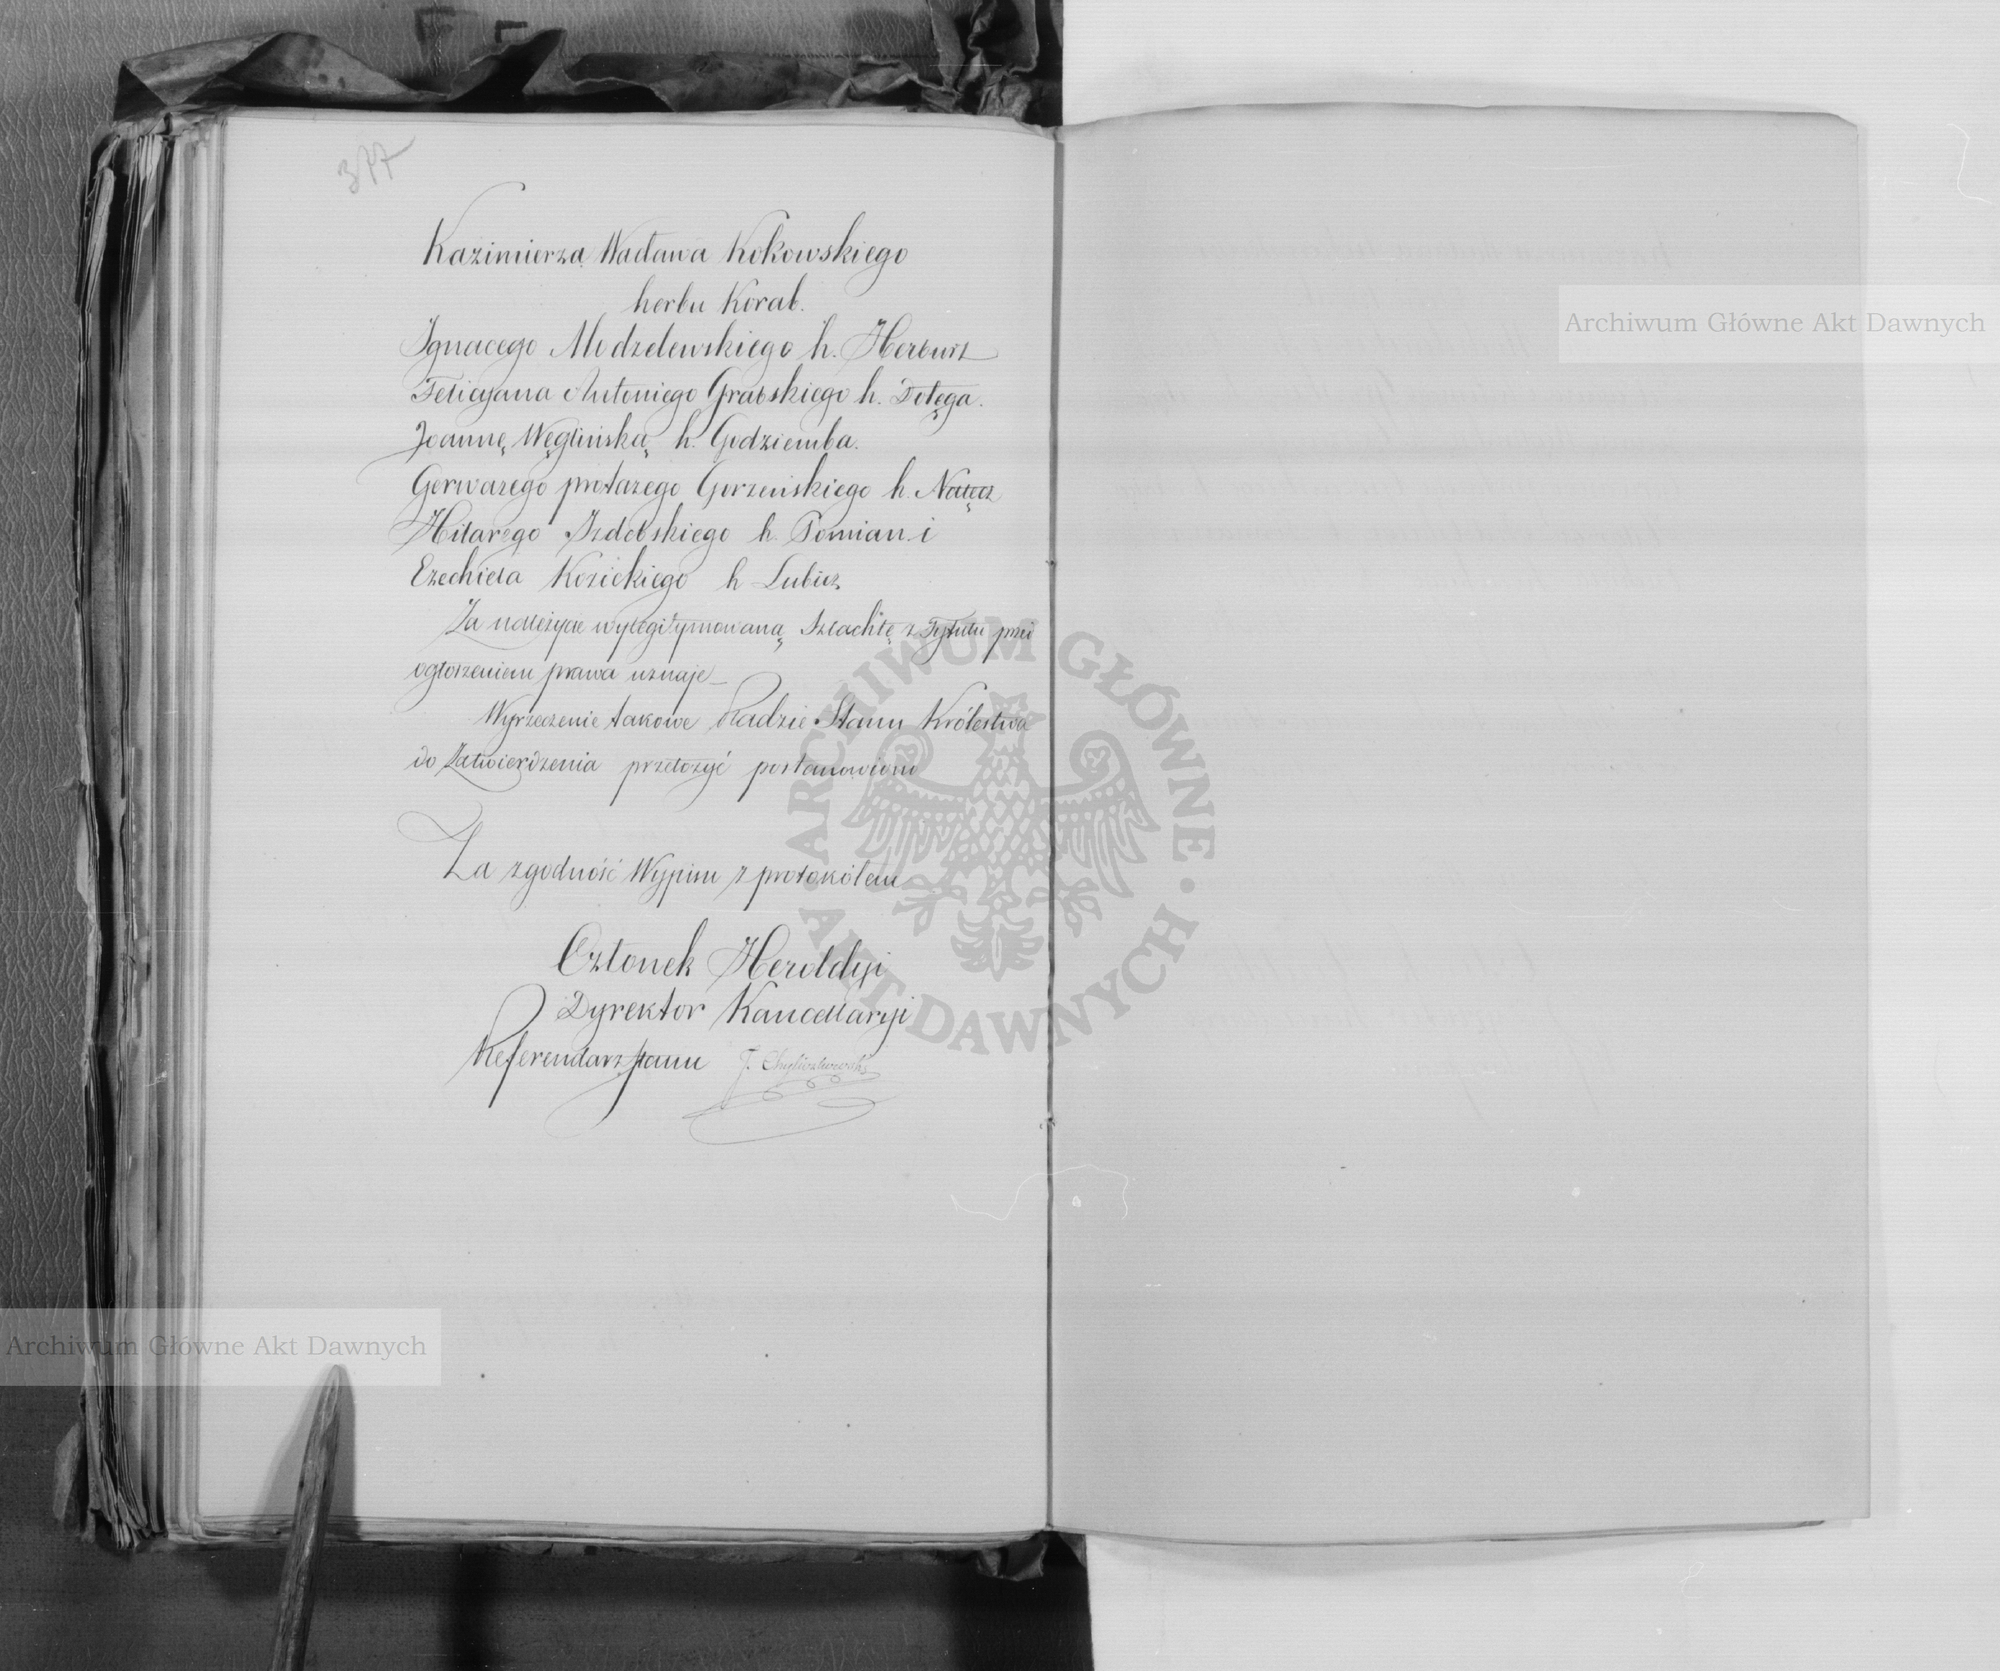 377
Kazimierza Wacława Kokowskiego
herbu Korab.
Ignacego Modzelewskiego h. Herburt
Felicyana Antoniego Grabskiego h. Dołęga.
Joannę Węglińską h. Godziemba.
Gerwazego protazego Gorzeńskiego h. Nałęcz
Hilarego Izdebskiego h. Pomian i
Ezechiela Kosickiego h Lubicz
Za należycie wylegitymowaną Szlachtę z Tytułu przed
ogłoszeniem prawa uznaje
Wyrzeczenie takowe Radzie Stanu Królestwa
do Zatwierdzenia przełożyć postanowiono
Za zgodność Wypisu z protokółem
Członek Heroldyi
Dyrektor Kancellaryi
Referendarz Stanu
Archiwum Główne Akt Dawnych
Archiwum Główne Akt Dawnych
ARCHIWUM GŁÓWNE • AKT DAWNYCH •